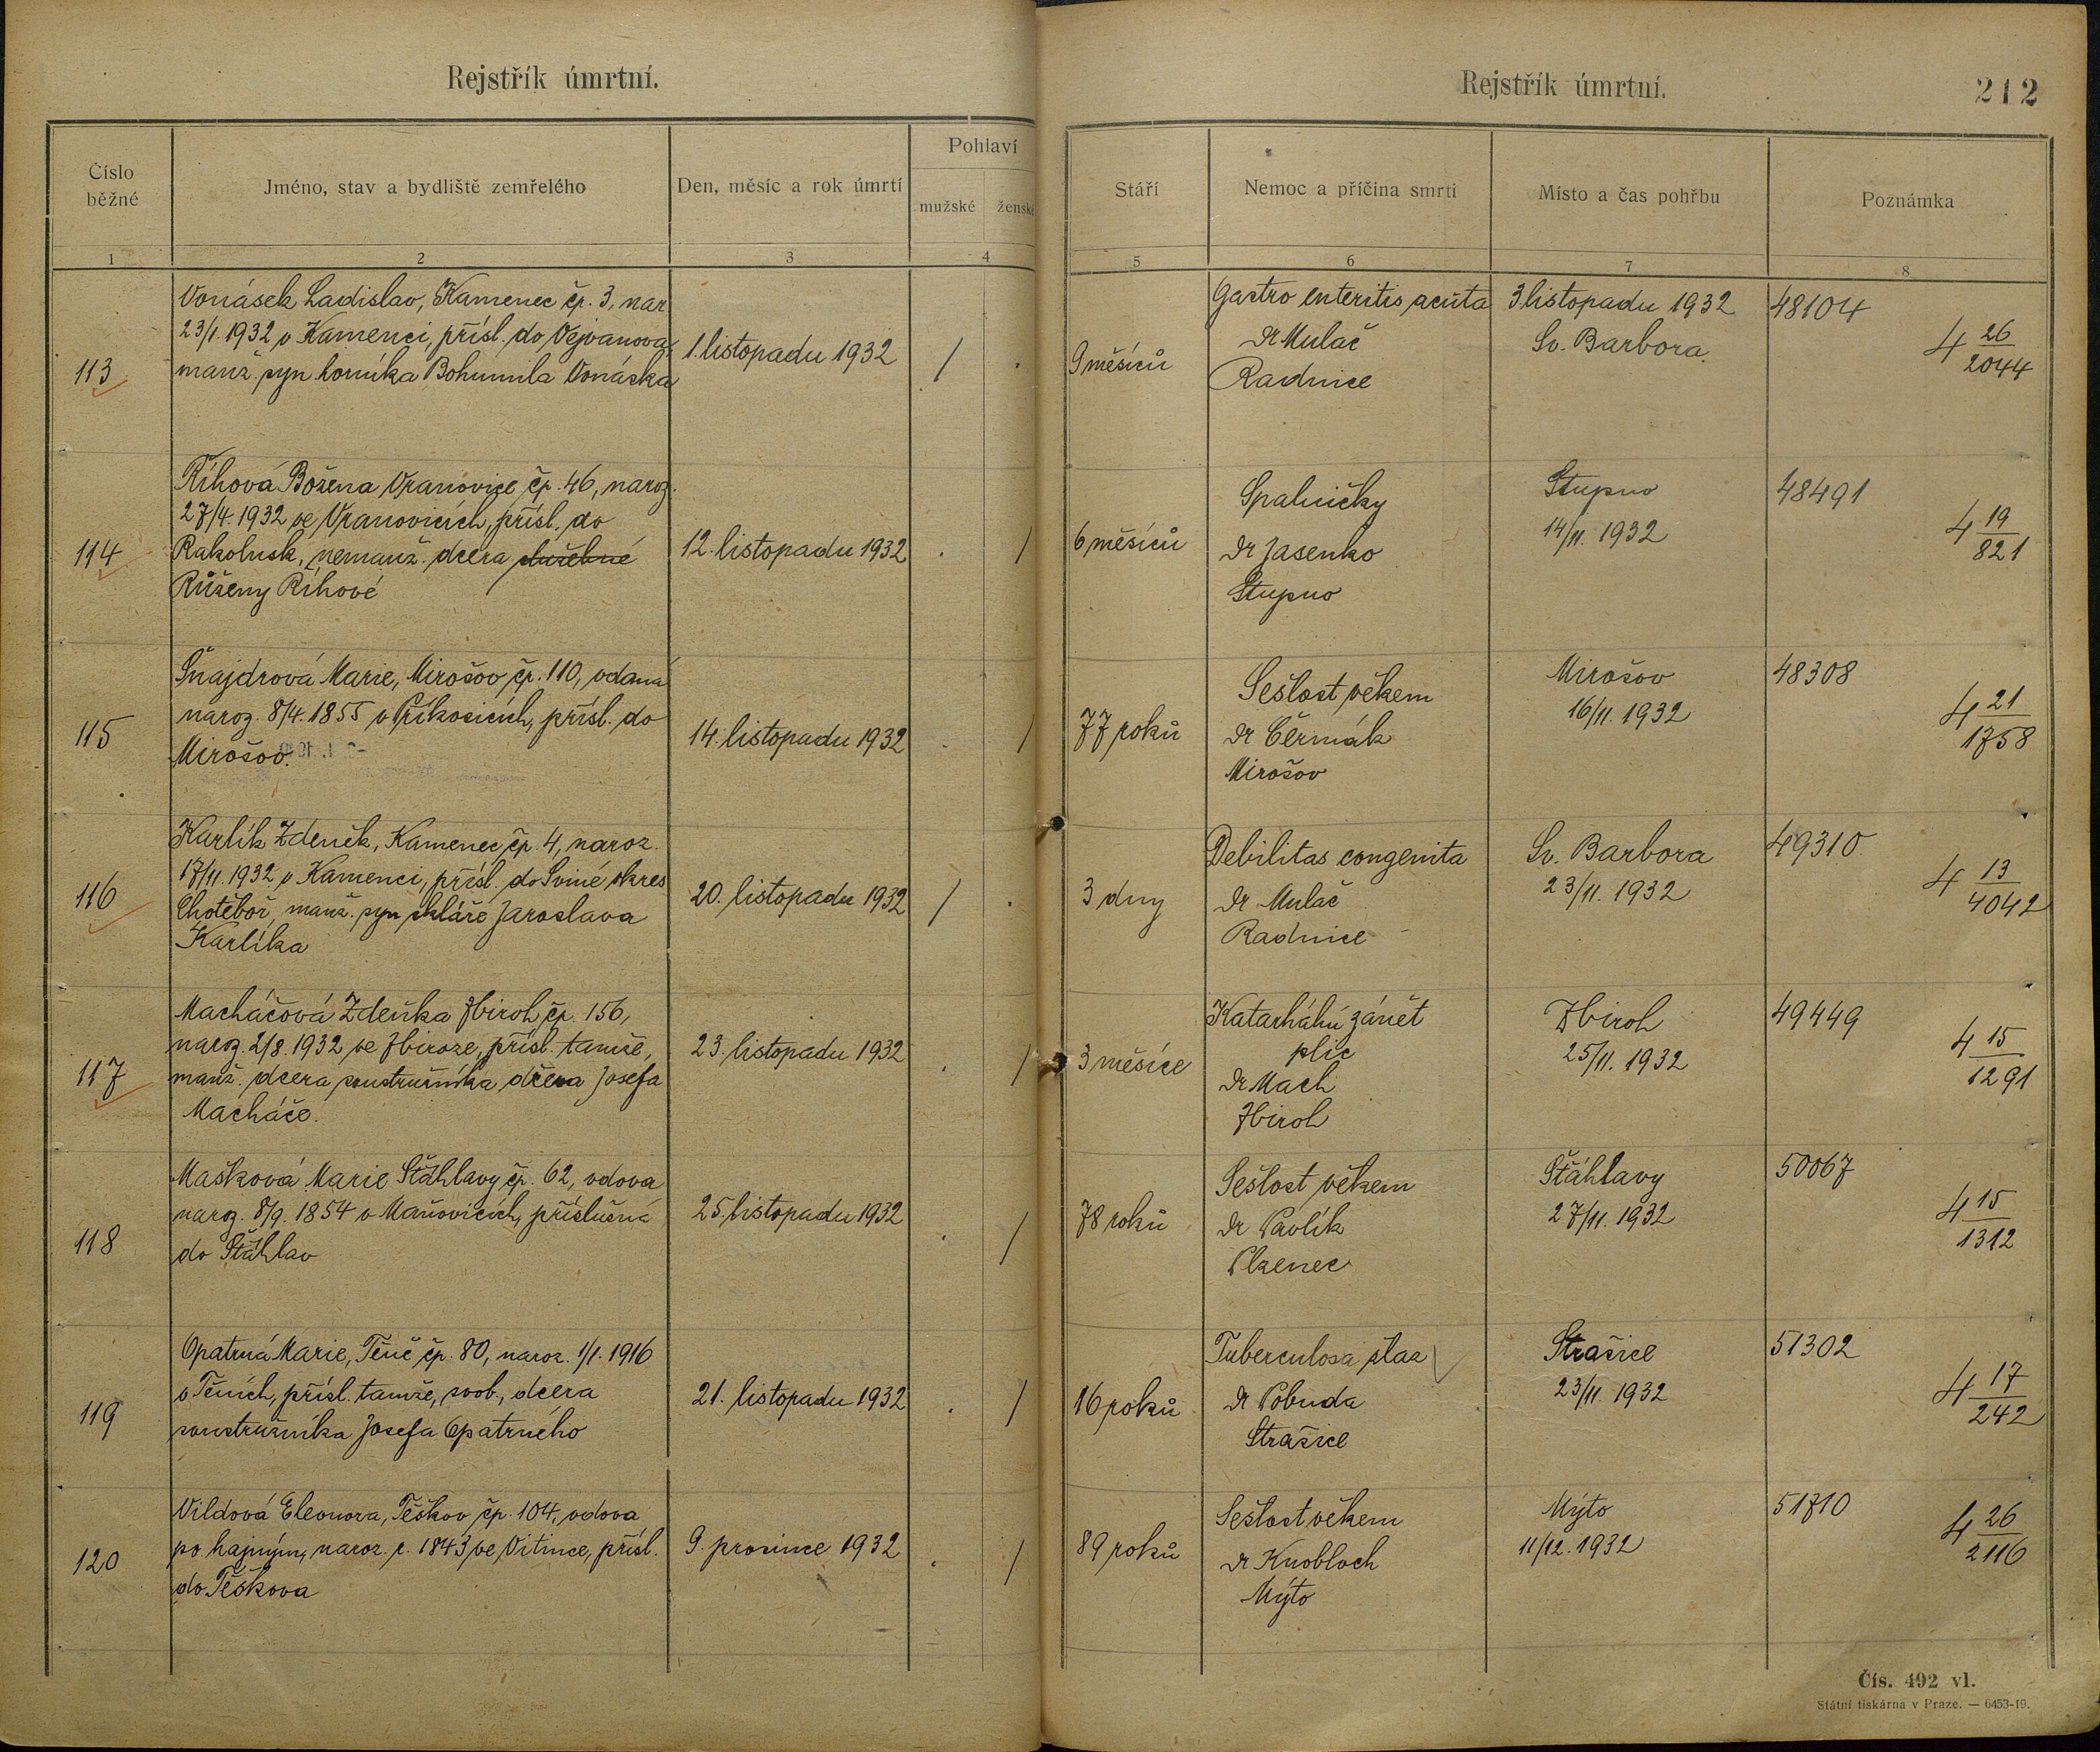 Rejstřík úmrtní.
Číslo běžné
Jméno, stav a bydliště zemřelého
Den, měsíc a rok úmrtí
Pohlaví
mužské
ženské
1
2
3
4
Rejstřík úmrtní.
212
Stáří
Nemoc a příčina smrti
Místo a čas pohřbu
Poznámka
5
6
7
8
113
Vonásek Ladislav, Kamenec čp. 3, nar.
23/1. 1932 v Kamenci, přísl. do Vejvanova,
manž. syn horníka Bohumila Vonáska
1. listopadu 1932
/ .
9 měsíců
Gastro enteritis acuta
Dr Mulač
Radnice
3 listopadu 1932
Sv. Barbora.
48104
4 26/2044
114
Říhová Božena Vranovice čp. 46, naroz.
27/4. 1932 ve Vranovicích, přísl. do
Rakolusk, nemanž. dcera služebné
Růženy Říhové
12. listopadu 1932
. /
6 měsíců
Spalničky
Dr Jasenko
Stupno
Stupno
14/11. 1932
48491
4 19/821
115
Šnajdrová Marie, Mirošov čp. 110, vdaná
naroz. 8/4. 1855 v Příkosicích, přísl. do
Mirošov.
14. listopadu 1932
. /
77 roků
Sešlost věkem
Dr Čermák
Mirošov
Mirošov
16/11. 1932
48308
4 21/1758
116
Karlík Zdeněk, Kamenec čp. 4, naroz.
17/11. 1932 v Kamenci, přísl. do Sviné okres
Chotěboř, manž. syn skláře Jaroslava
Karlíka
20. listopadu 1932
/ .
3 dny
Debilitas congenita
Dr Mulač
Radnice
Sv. Barbora
23/11. 1932
49310
4 13/4042
117
Macháčová Zdeňka Zbiroh čp. 156,
naroz. 2/8. 1932 ve Zbiroze, přísl. tamže,
manž. dcera soustružníka dřeva Josefa
Macháče.
23. listopadu 1932
. /
3 měsíce
Katarhální zánět
plic
Dr Mach
Zbiroh
Zbiroh
25/11. 1932
49449
4 15/1291
118
Mašková Marie Štáhlavy čp. 62, vdova
naroz. 8/9. 1854 v Maňovicích, příslušná
do Štáhlav
25. listopadu 1932
. /
78 roků
Sešlost věkem
Dr Pavlík
Plzenec
Štáhlavy
27/11. 1932
50067
4 15/1312
119
Opatrná Marie, Těně čp. 80, naroz. 1/1. 1916
v Těních, přísl. tamže, svob., dcera
soustružníka Josefa Opatrného
21. listopadu 1932
. /
16 roků
Tuberculosa plaz
Dr Pobuda
Strašice
Strašice
23/11. 1932
51302
4 17/242
120
Vildová Eleonora, Těškov čp. 104, vdova
po hajném, naroz. r. 1843 ve Vitince, přísl.
do Těškova
9. prosince 1932
. /
89 roků
Sešlost věkem
Dr Knobloch
Mýto
Mýto
11/12. 1932
51710
4 26/2116
Čís. 492 vl.
Státní tiskárna v Praze. — 6453-19.